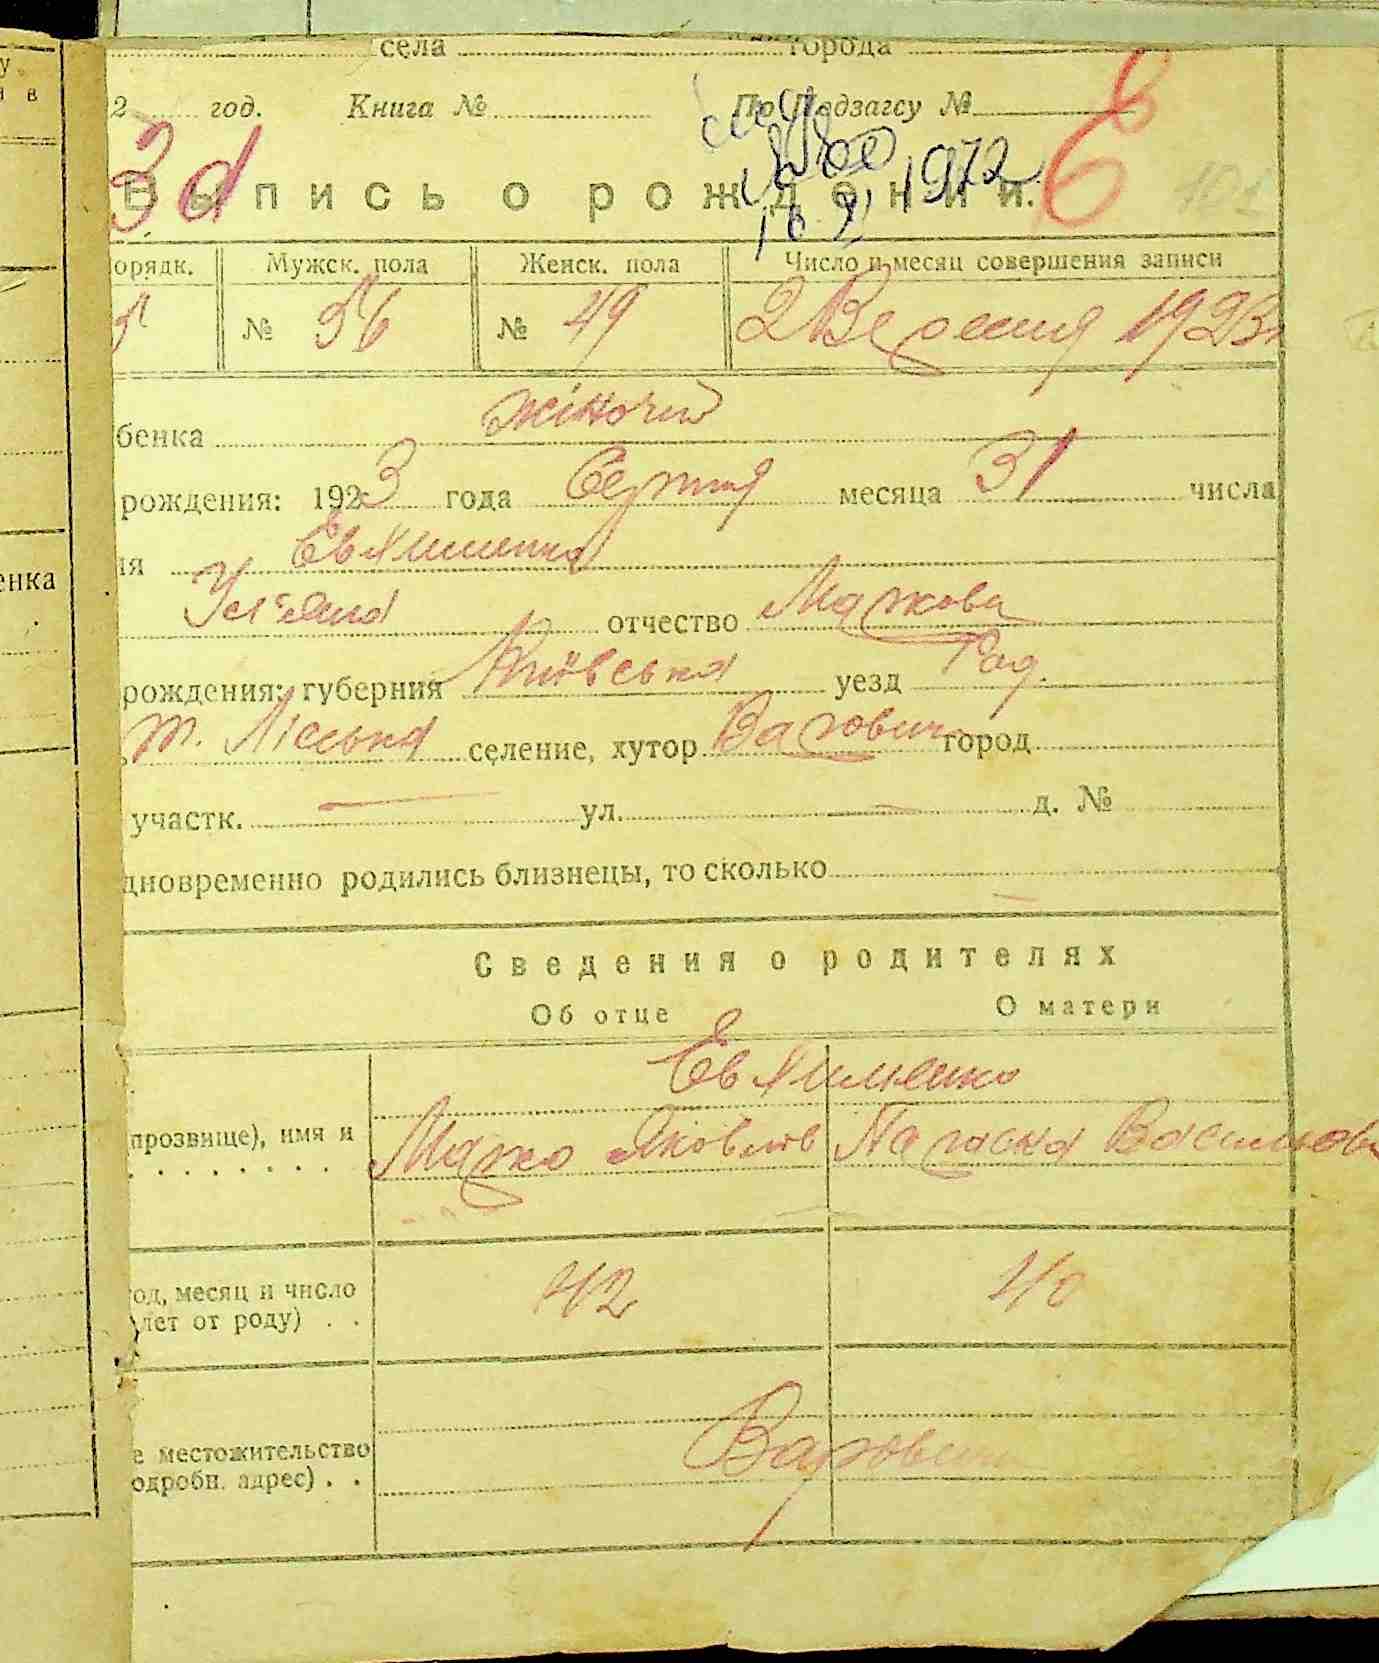 села города
2 год. Книга № По Подзагсу №
1972
Выпись о рождении.
орядк. Мужск. пола Женск. пола Число и месяц совершения записи
№ 56 № 49 2 Вересня 1923
бенка жіночий
рождения: 1923 года Серпня месяца 31 числа
ия Евхименко
Ул'яна отчество Маркова
рождения: губерния Київська уезд Рад.
Ліська селение, хутор Варовичи город
участк. — ул. — д. №
дновременно родились близнецы, то сколько —
Сведения о родителях
Об отце О матери
Евхименко
прозвище), имя и Марко Яковлев Параска Васильов
од, месяц и число 42 40
лет от роду) . .
е местожительство Варовичи
одробн. адрес) . .
у
и в
енка